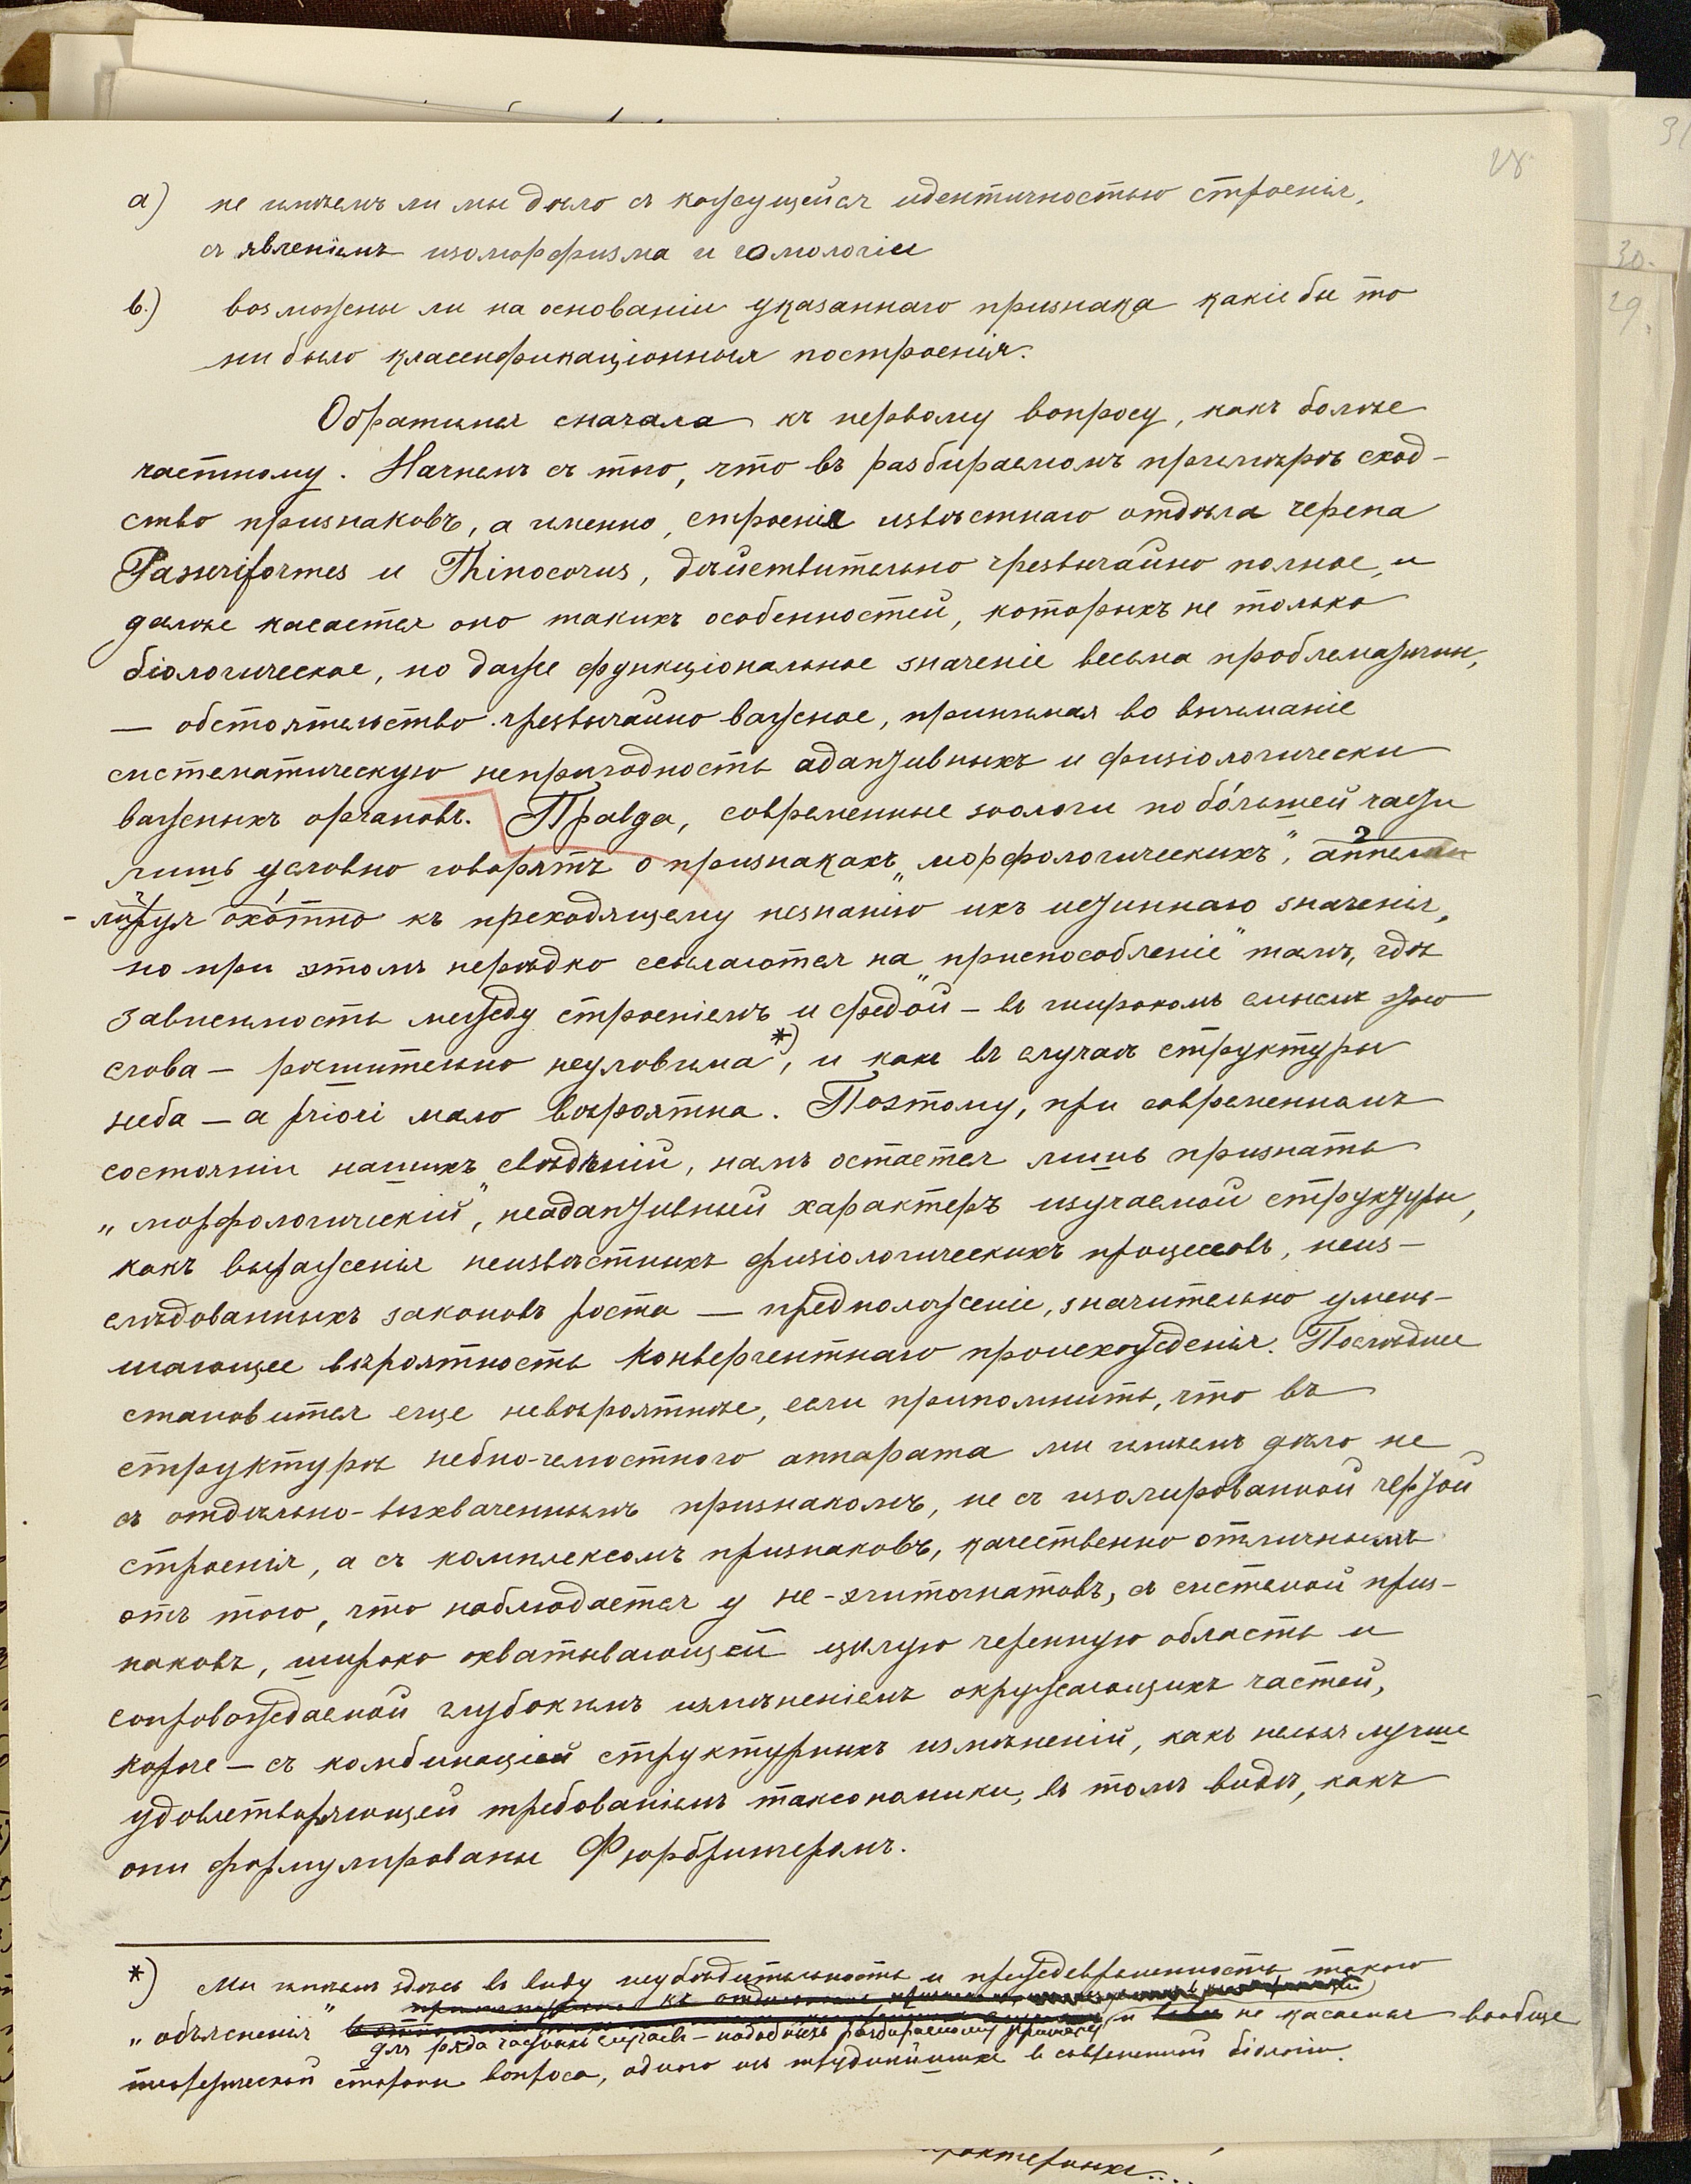 28
а) не имѣемъ ли мы дѣло съ кажущейся идентичностью строенія,
съ явленіемъ изоморфизма и гомологіи
b.) возможны ли на основаніи указаннаго признака какіе бы то
ни было классификаціонныя построенія.
Обратимся сначала къ первому вопросу, какъ болѣе
частному. Начнемъ съ того, что въ разбираемомъ примѣрѣ сход-
ство признаковъ, а именно, строенія извѣстнаго отдѣла черепа
Passeriformes и Thinocorus, дѣйствительно чрезвычайно полное, и
далѣе касается оно такихъ особенностей, которыхъ не только
біологическое, но даже функціональное значеніе весьма проблематичн,
— обстоятельство чрезвычайно важное, принимая во вниманіе
систематическую непригодность адаптивныхъ и физіологически
важныхъ органовъ. Правда, современные зоологи по бо́льшей части
лишь условно говорятъ о признакахъ „морфологическихъ", аппелли-
-руя охотно къ преходящему незнанію ихъ истиннаго значенія,
но при этомъ нерѣдко ссылаются на „приспособленіе" тамъ, гдѣ
зависимость между строеніемъ и средой – въ широкомъ смыслѣ этого
слова – рѣшительно неуловима*), и какъ въ случаѣ структуры
неба – a priori мало вѣроятна. Поэтому, при современномъ
состояніи нашихъ свѣдѣній, намъ остается лишь признать
„морфологическій", неадаптивный характеръ изучаемой структуры,
какъ выраженія неизвѣстныхъ физіологическихъ процессовъ, неиз-
слѣдованныхъ законовъ роста — предположеніе, значительно умень-
шающее вѣроятность конвергентнаго происхожденія. Послѣднее
становится еще невѣроятнѣе, если припомнить, что въ
структурѣ небно-челюстного аппарата мы имѣемъ дѣло не
съ отдѣльно-выхваченнымъ признакомъ, не съ изолированной чертой
строенія, а съ комплексомъ признаковъ, качественно отличнымъ
отъ того, что наблюдается у не-эгитогнатовъ, съ системой приз-
наковъ, широко охватывающей цѣлую черепную область и
сопровождаемой глубокимъ измѣненіемъ окружающихъ частей,
короче – съ комбинаціей структурныхъ измѣненій, какъ нельзя лучше
удовлетворяющей требованіямъ таксономики, въ томъ видѣ, какъ
они формулированы Фюрбрингеромъ.
*) Мы имѣемъ здѣсь въ виду неубѣдительность и преждевременность такого
„объясненія"
для ряда частныхъ случаевъ – подобныхъ разбираемому примѣру, и не касаемся вообще
теоретической стороны вопроса, одного изъ труднѣйшихъ въ современной біологіи.
30.
29.